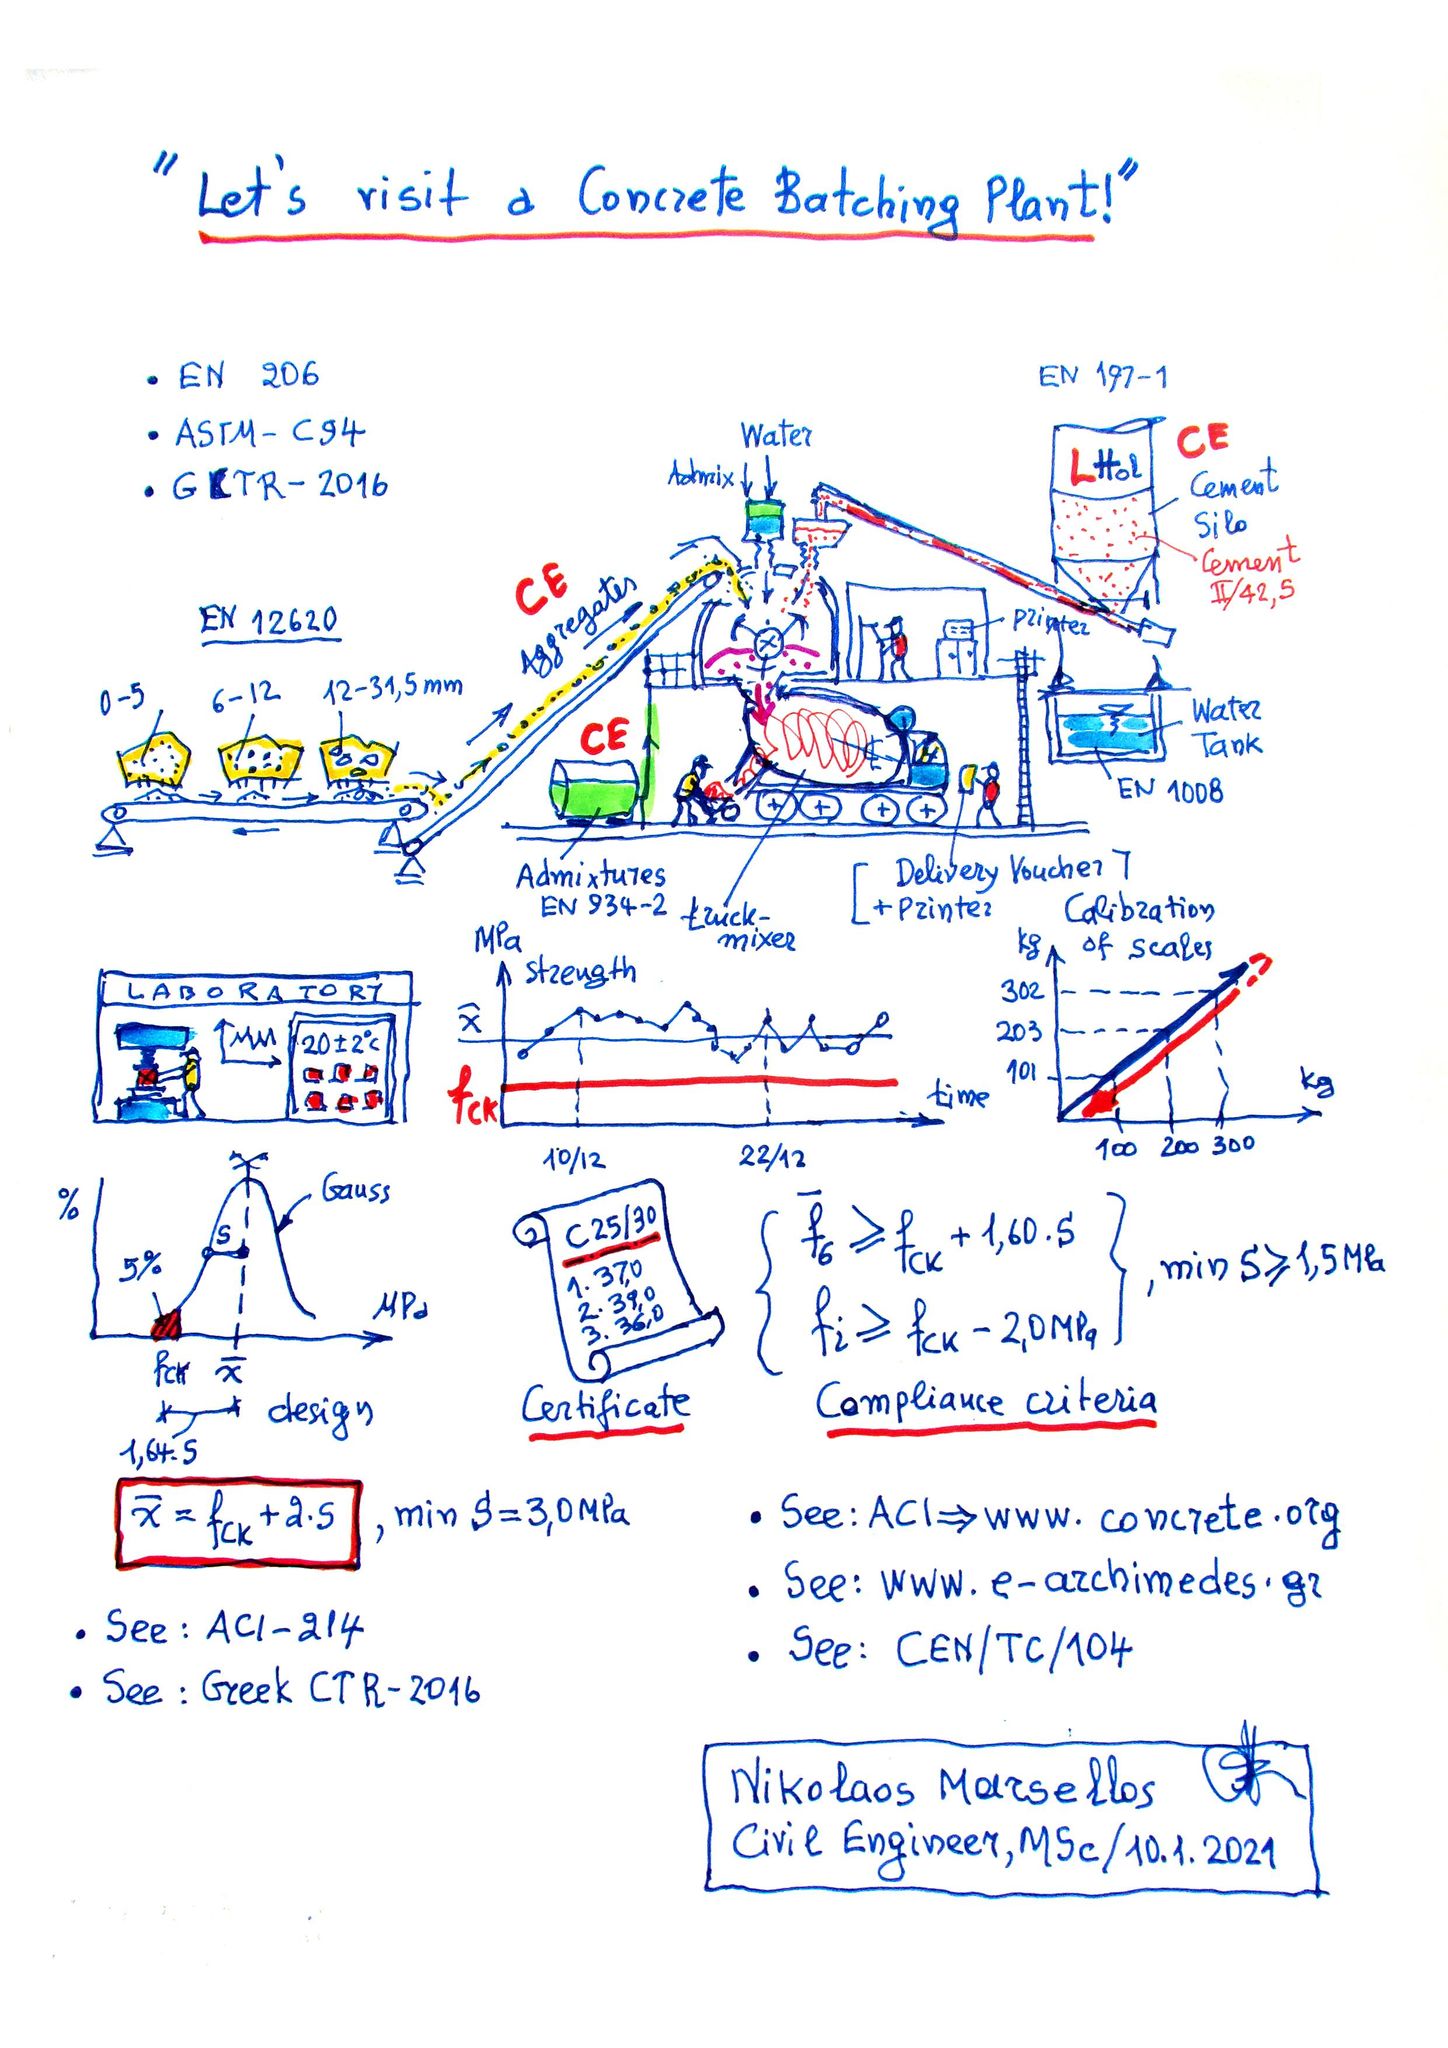 "Let's visit a Concrete Batching Plant!"
• EN 206
• ASTM-C94
• GKTR-2016
EN 197-1
CE
Cement
Silo
Cement
II/42,5
Water
Admix
CE
Aggregates
EN 12620
0-5
6-12
12-31,5mm
Printer
CE
Water
Tank
EN 1008
Admixtures
EN 934-2
truck-
mixer
Delivery Voucher
+Printer
LABORATORY
20±2°C
MPa
Strength
x̄
fCK
time
10/12
22/12
Calibration
of scales
kg
302
203
101
kg
100 200 300
%
Gauss
S
5%
MPa
fCK x̄
design
1,64.S
C25/30
1. 37,0
2. 39,0
3. 36,0
Certificate
f̄6 ⩾ fCK + 1,60.S
, min S⩾1,5MPa
fi ⩾ fCK - 2,0MPa
Compliance criteria
x̄ = fCK + 2.S , min S=3,0MPa
• See: ACI-214
• See: Greek CTR-2016
• See: ACI⇒www.concrete.org
• See: www.e-archimedes.gr
• See: CEN/TC/104
Nikolaos Marsellos
Civil Engineer, MSc/10.1.2021